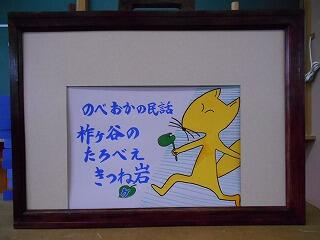 のべおかの民話
柞ヶ谷の
たろべえ
きつね岩